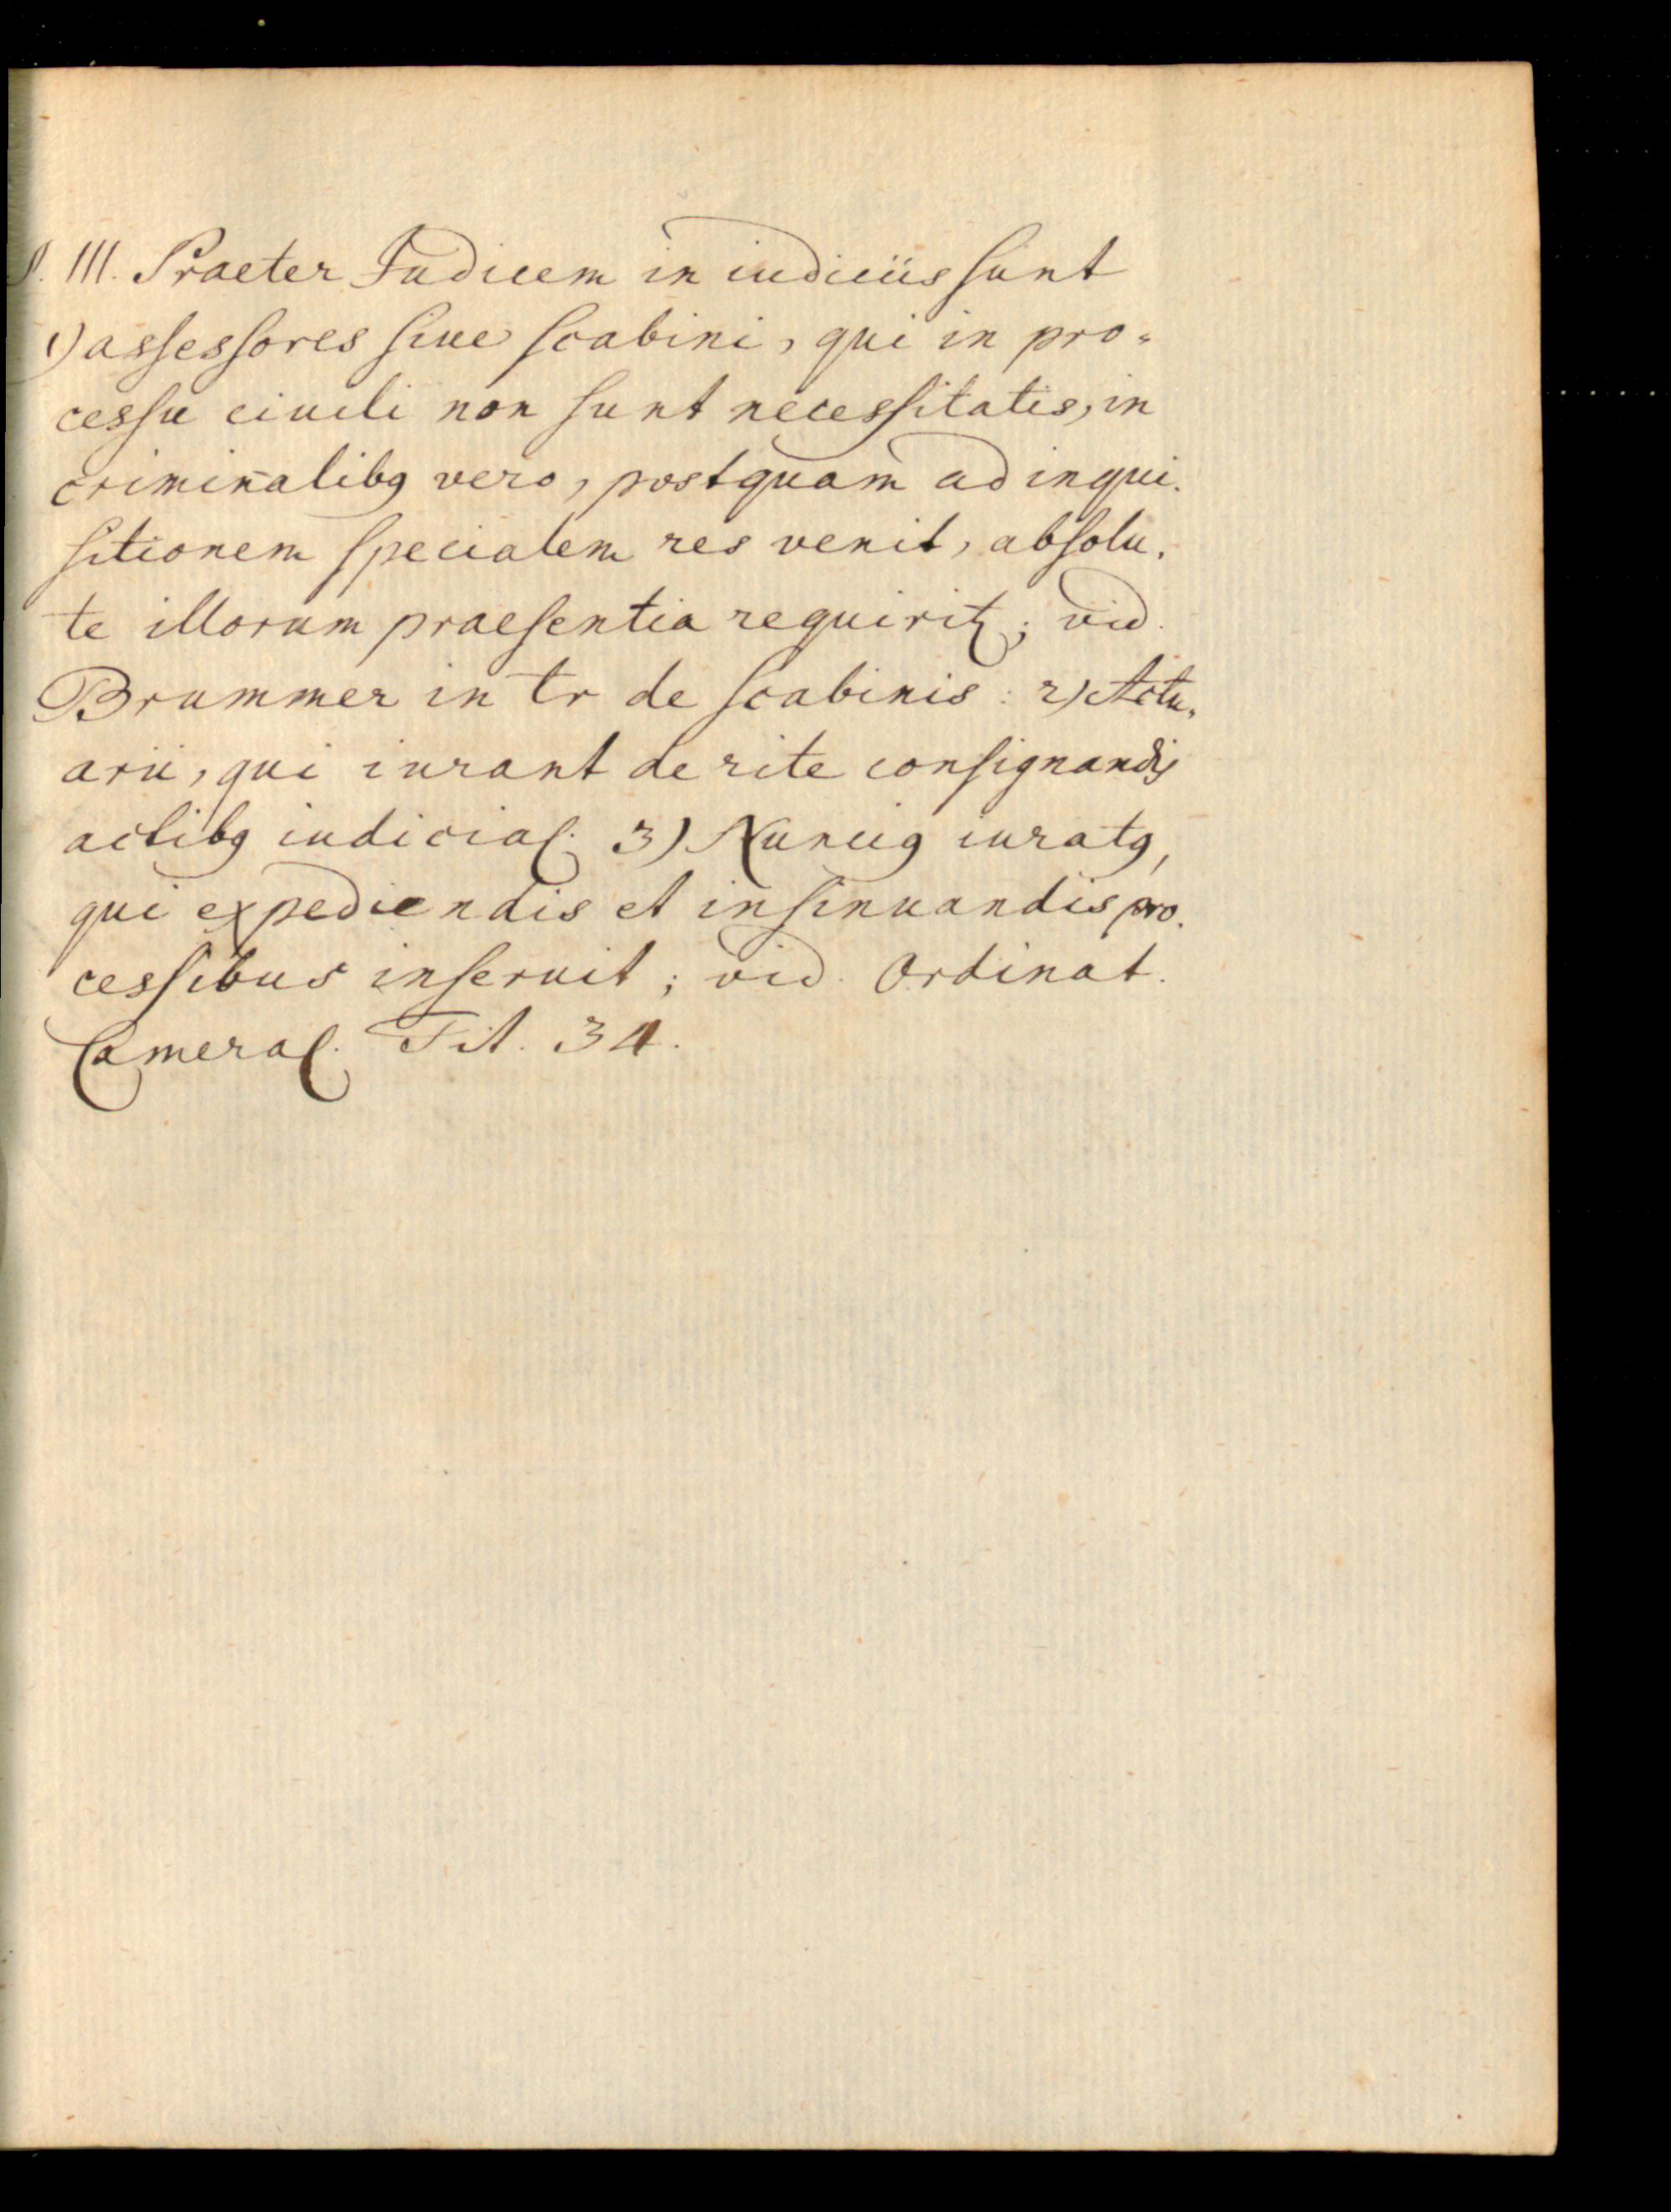 §. III. Praeter Judicem in iudiciis sunt
1) assessores siue scabini, qui in pro-
cessu ciuili non sunt necessitatis, in
criminalibꝰ vero, postquam ad inqui-
sitionem specialem res venit, absolu-
te illorum praesentia requiritꝛ; vid.
Brummer in tr de scabinis: 2) Actu-
arii, qui iurant de rite consignandis
actibꝰ iudicial. 3) Nunciꝰ iuratꝰ,
qui expediendis et insinuandis pro-
cessibus inseruit; vid. Ordinat.
Cameral. Tit. 34.